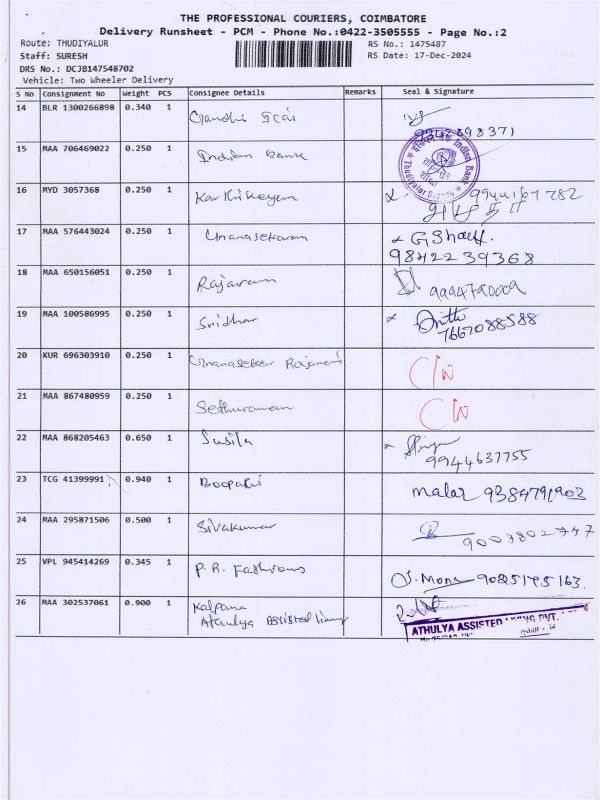 THE PROFESSIONAL COURIERS, COIMBATORE
Delivery Runsheet - PCM - Phone No.:0422-3505555 - Page No.:2
Route: THUDIYALUR
RS No.: 1475487
Staff: SURESH
RS Date: 17-Dec-2024
DRS No.: DCJB147548702
Vehicle: Two Wheeler Delivery
S No Consignment No Weight PCS Consignee Details Remarks Seal & Signature
14 BLR 1300266898 0.340 1 Gandhi
98371
15 MAA 706469022 0.250 1 Indian Bank
Indian Bank
Thudiyalur Branch
16 MYD 3057368 0.250 1 Karthikeyen
17 MAA 576443024 0.250 1 Gnanasekaran
9842239368
18 MAA 650156051 0.250 1 Rajaram
19 MAA 100586995 0.250 1 Sridhar
7667088588
20 KUR 696303910 0.250 1 Gnanaseker
C/W
21 MAA 867480959 0.250 1 Sethuraman
C/W
22 MAA 868205463 0.650 1 Susila
9944637755
23 TCG 41399991 0.940 1 Boopathi malar 9384791903
24 MAA 295871506 0.500 1 Sivakumar
9003802747
25 VPL 945414269 0.345 1 P.R. Fashions
9085175163
26 MAA 302537061 0.900 1 Kalpana
Athulya Assisted living
ATHULYA ASSISTED LIVING PVT.